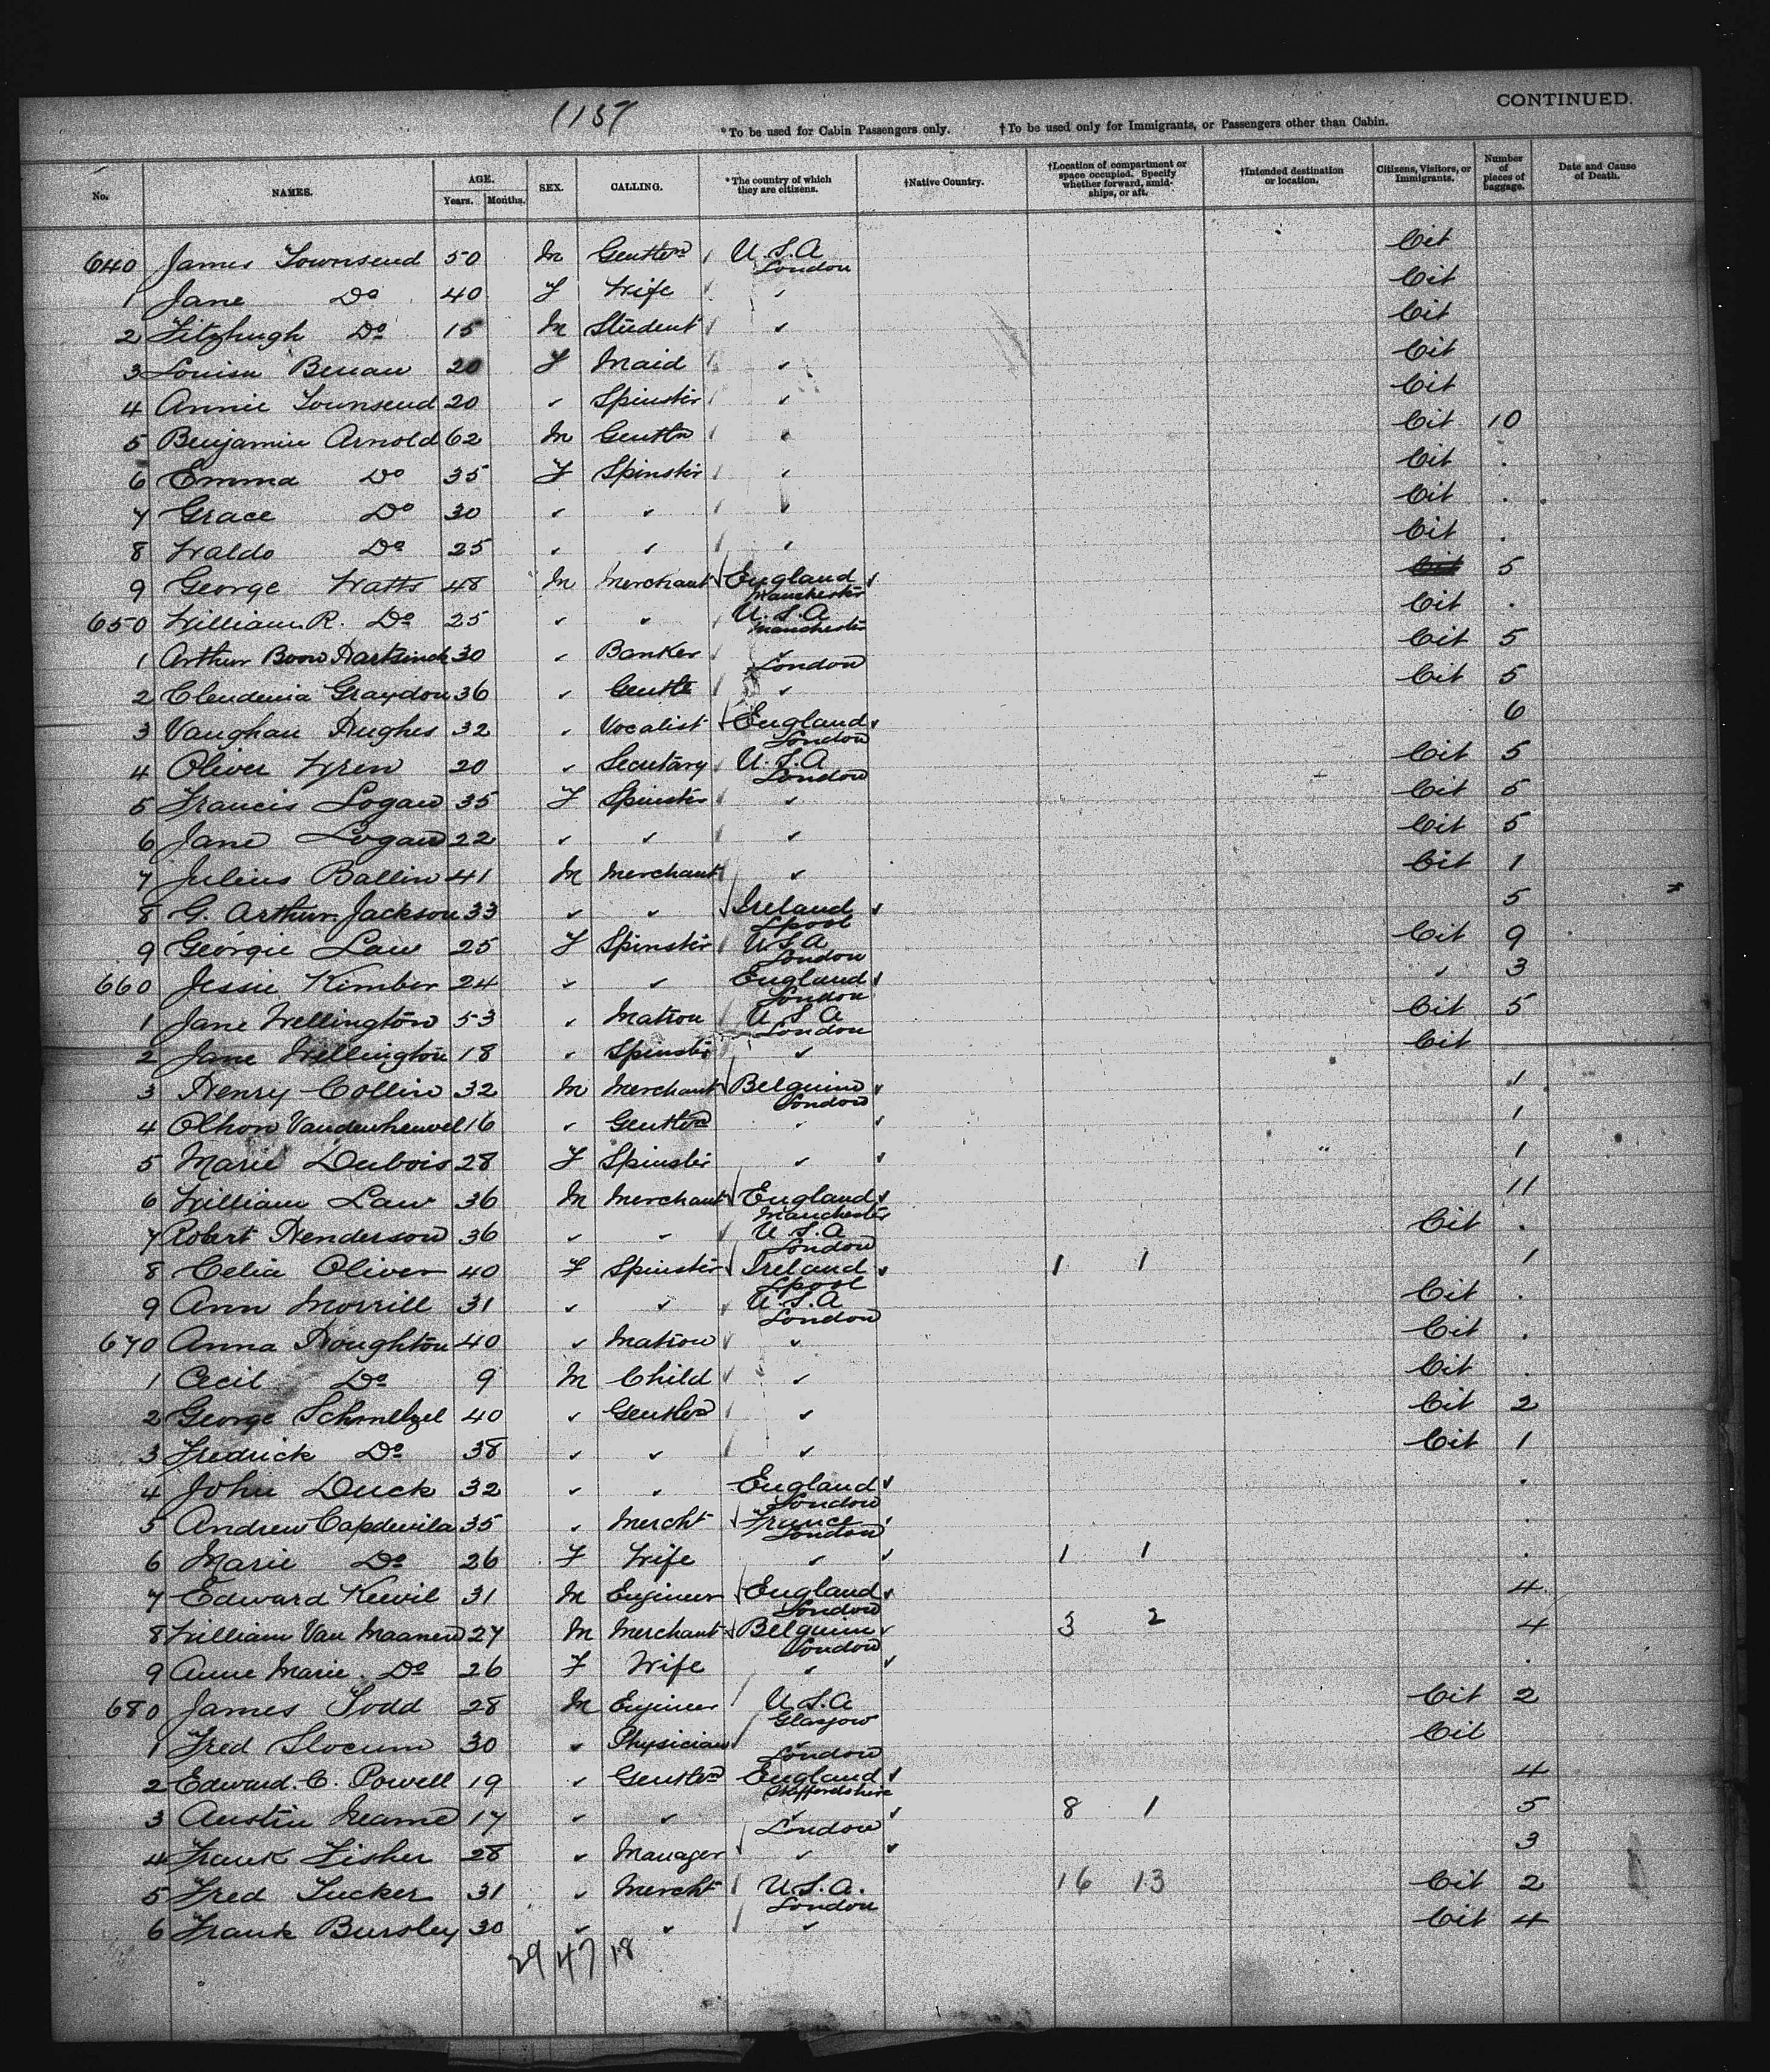 1137
CONTINUED.
*To be used for Cabin Passengers only. †To be used only for Immigrants, or Passengers other than Cabin.
No. NAMES. AGE. Years. Months. SEX. CALLING. *The country of which they are citizens. †Native Country. †Location of compartment or space occupied. Specify whether forward, amidships, or aft. †Intended destination or location. Citizens, Visitors, or Immigrants. Number of pieces of baggage. Date and Cause of Death.
640 James Townsend 50 M Gentlen U.S.A London Cit
1 Jane Do 40 F Wife " Cit
2 Fitzhugh Do 15 M Student " Cit
3 Louisa Benau 20 F Maid " Cit
4 Annie Townsend 20 " Spinster " Cit
5 Benjamin Arnold 62 M Gentln " Cit 10
6 Emma Do 35 F Spinster " Cit .
7 Grace Do 30 " " " Cit .
8 Waldo Do 25 " " " Cit .
9 George Watts 48 M Merchant England Manchester 5
650 William R. Do 25 " " U.S.A Manchester Cit .
1 Arthur Boon 30 " Banker " London Cit 5
2 Graydon 36 " Gentle " Cit 5
3 Vaughan Hughes 32 " Vocalist England London 6
4 Oliver Wren 20 " Secretary U.S.A London Cit 5
5 Francis Logan 35 F Spinster " Cit 5
6 Jane Logan 22 " " " Cit 5
7 Julius Ballin 41 M Merchant " Cit 1
8 G. Arthur Jackson 33 " " Ireland Lpool 5
9 Georgie Law 25 F Spinster U.S.A London Cit 9
660 Jessie Kimber 24 " " England London " 3
1 Jane Wellington 53 " Matron U.S.A London Cit 5
2 Jane Wellington 18 " Spinster " Cit
3 Henry Collin 32 M Merchant Belguim London 1
4 Othon Vandenheuvel 16 " Gentlen " 1
5 Marie Dubois 28 F Spinster " 1
6 William Law 36 M Merchant England Manchester 11
7 Robert Henderson 36 " " U.S.A London Cit .
8 Celia Oliver 40 F Spinster Ireland Lpool 1 1 1
9 Ann Morrill 31 " " U.S.A London Cit .
670 Anna Houghton 40 " Matron " Cit .
1 Cecil Do 9 M Child " Cit .
2 George Schmelzel 40 " Gentlen " Cit 2
3 Fredrick Do 38 " " " Cit 1
4 John Duck 32 " " England London .
5 Andrew Capdevila 35 " Mercht France London .
6 Marie Do 26 F Wife " 1 1 .
7 Edward Kewil 31 M Engineer England London 4
8 William Van Maanen 27 M Merchant Belguim London 3 2 4
9 Anne Marie Do 26 F Wife " .
680 James Todd 28 M Engineer U.S.A Glasgow Cit 2
1 Fred Slocum 30 " Physician " London Cit
2 Edward C. Powell 19 " Gentlen England Staffordshire 4
3 Austin Neame 17 " " " London 8 1 5
4 Frank Fisher 28 " Manager " 3
5 Fred Tucker 31 " Mercht U.S.A. London 16 13 Cit 2
6 Frank Bursley 30 " " " Cit 4
29 47 18